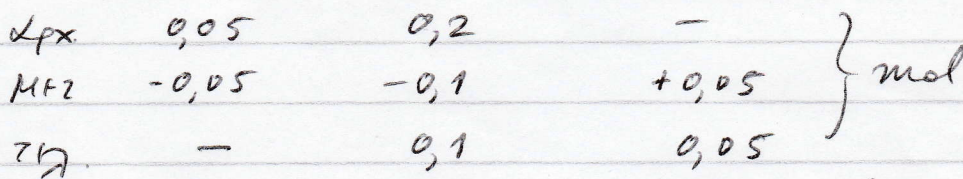 Αρχ. 0,05 0,2 —
-0,05 -0,1 +0,05 } mol
— 0,1 0,05